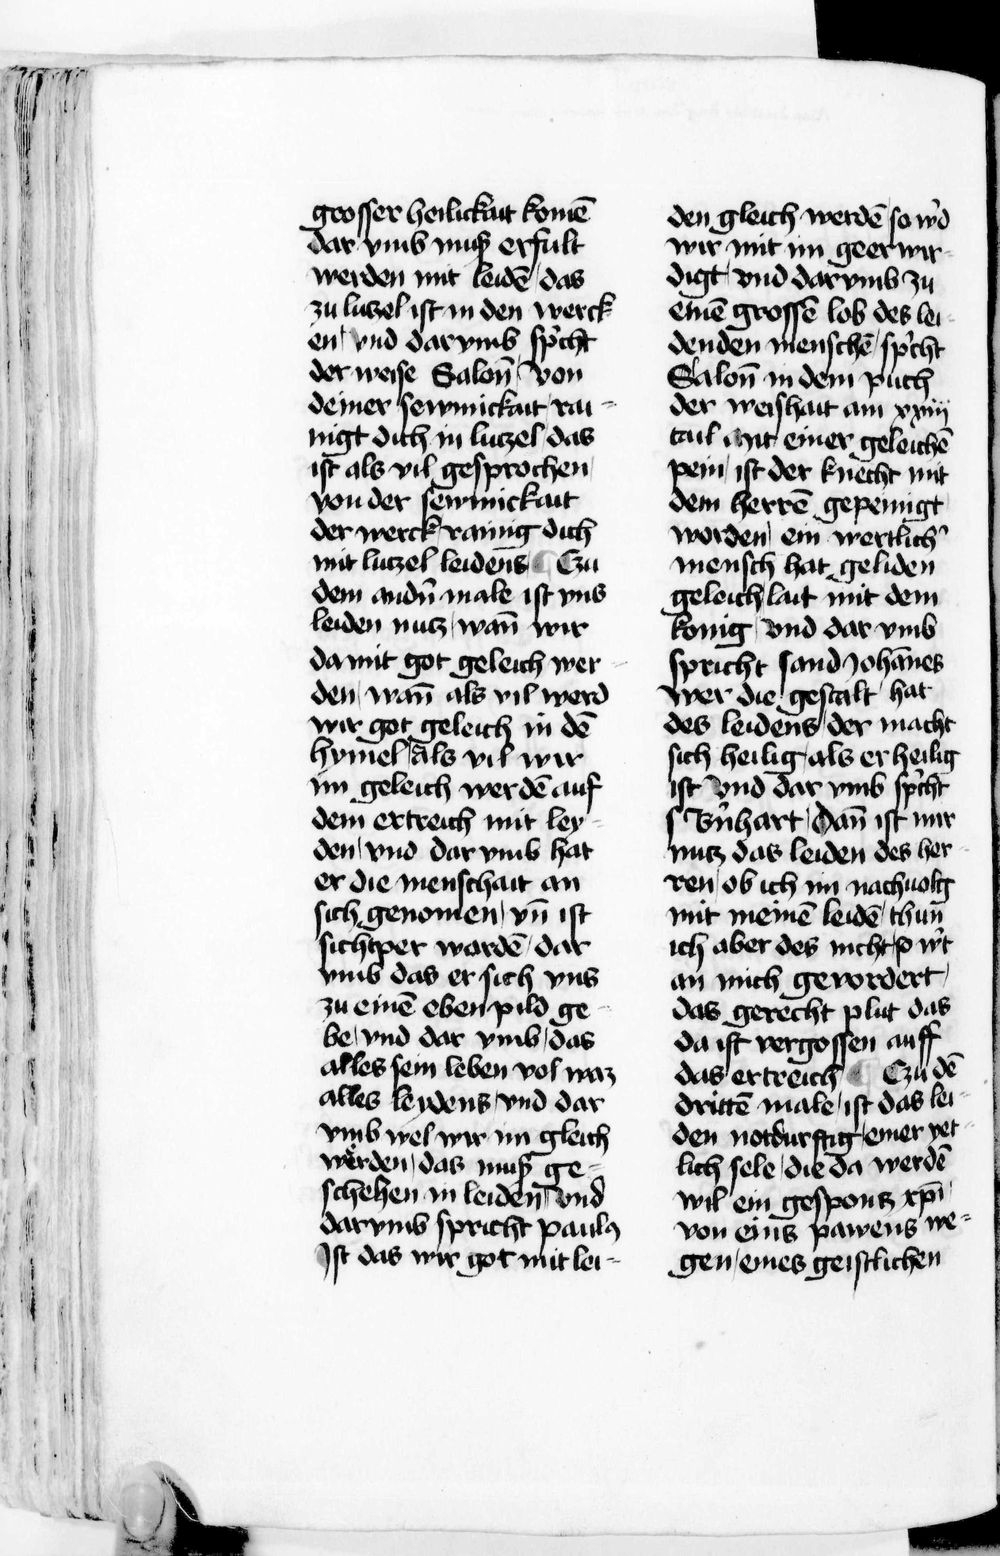 grosser heilickait komē
dar vmb muß erfult
werden mit leidē / das
zu lutzel ist in den werck
en / vnd dar vmb sp͛cht
der weise Salon̄ / von
deiner sewmickait / rai-
nigt dich in lutzel / das
ist als vil gesprochen /
von der sewmickait
der werck / rainig dich
mit lutzel leidens / Czu
dem and͛n male ist vns
leiden nutz / wan̄ wir
da mit got geleich wer-
den / wan̄ als vil werd
wir got geleich in dē
hymel / Als vil wir
im geleich werdē auf
dem ertreich mit ley-
den / vnd dar vmb hat
er die menschait an
sich genomen / vn̄ ist
sichtper wordē / dar
vmb das er sich vns
zu einē eben pild ge-
be / vnd dar vmb / das
alles sein leben vol waz
alles leydens / vnd dar
vmb wel wir im gleich
werden / das muß ge-
schehen in leiden / vnd
dar vmb spricht paulꝯ
Ist das wir got mit lei-
den gleich werdē / so w͛d
wir mit im geerwir-
digt / vnd dar vmb zu
einē grossē lob des lei-
denden menschē / sp͛cht
Salon̄ in dem puch
der weishait am xxiiij
tail Mit einer geleichē
pein / ist der knecht mit
dem herrē gepeinigt
worden / ein wertlich͛
mensch hat geliden
geleich lait mit dem
konig / vnd dar vmb
spricht sand Johānes
Wer die gestalt hat
des leidens / der macht
sich heilig / als er heilig
ist / vnd dar vmb sp͛cht
s B͛nhart / Dan̄ ist mir
nutz das leiden des her-
ren / ob ich im nachuolg
mit meinē leidē / thun̄
ich aber des nicht / so w͛t
an mich gevordert /
das gerecht plut das
da ist vergossen auff
das ertreich Czu dē
drittē male / ist das lei-
den notdurftig / einer yet-
lich sele / die da werdē
wil ein gespontz xp̄i /
von eins pawens we-
gen / eines geistlichen